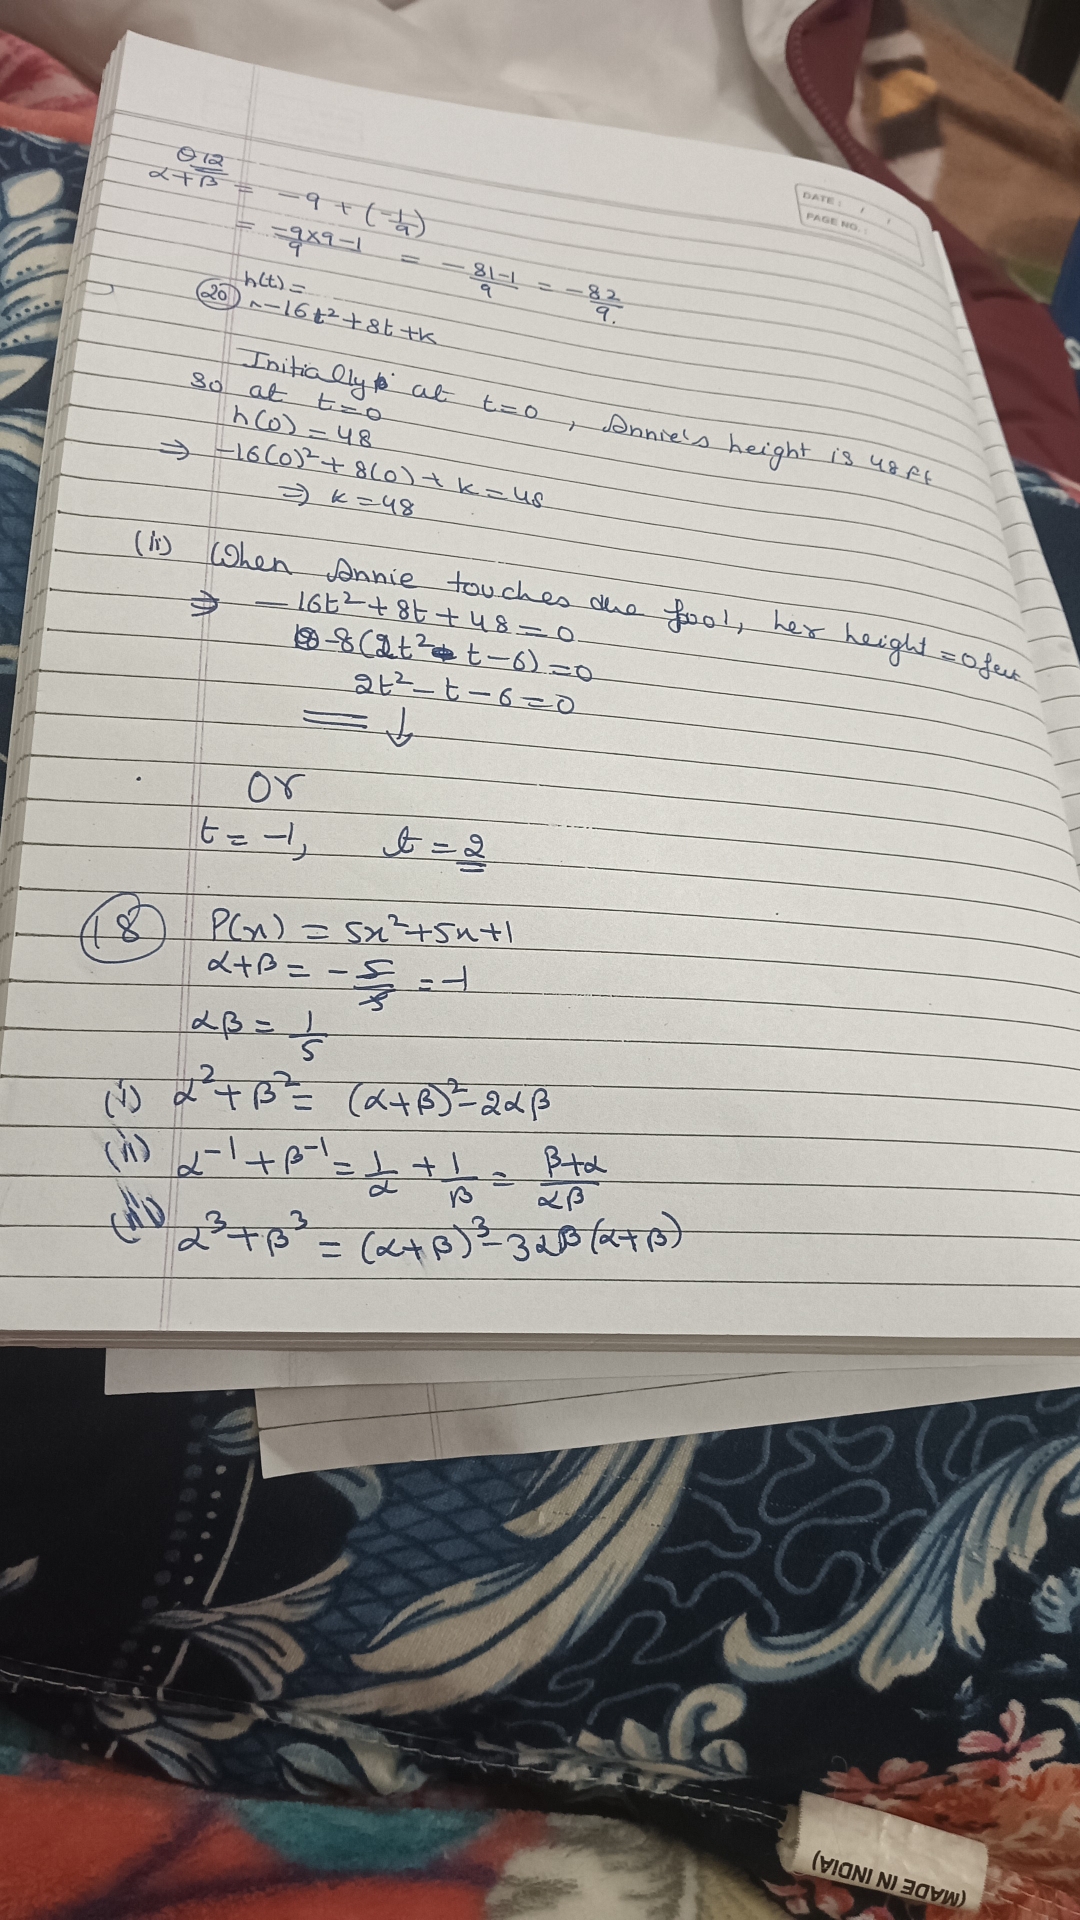 Q12
α+β = -9 + (-1/9)
= -9×9-1/9 = -81-1/9 = -82/9.
DATE: / /
PAGE NO.:
(20) h(t) =
-16t²+8t+k
Initially at t=0, Annie's height is 48ft
so at t=0
h(0) = 48
⇒ -16(0)²+8(0)+k=48
⇒ k=48
(ii) When Annie touches the pool, her height = 0 feet
⇒ -16t²+8t+48=0
-8(2t² - t-6)=0
2t²-t-6=0
= ↓
or
t = -1, t = 2
(18) P(x) = 5x²+5x+1
α+β = -5/5 = -1
αβ = 1/5
(i) α²+β² = (α+β)²-2αβ
(ii) α⁻¹+β⁻¹ = 1/α + 1/β = β+α/αβ
(iii) α³+β³ = (α+β)³-3αβ(α+β)
(MADE IN INDIA)